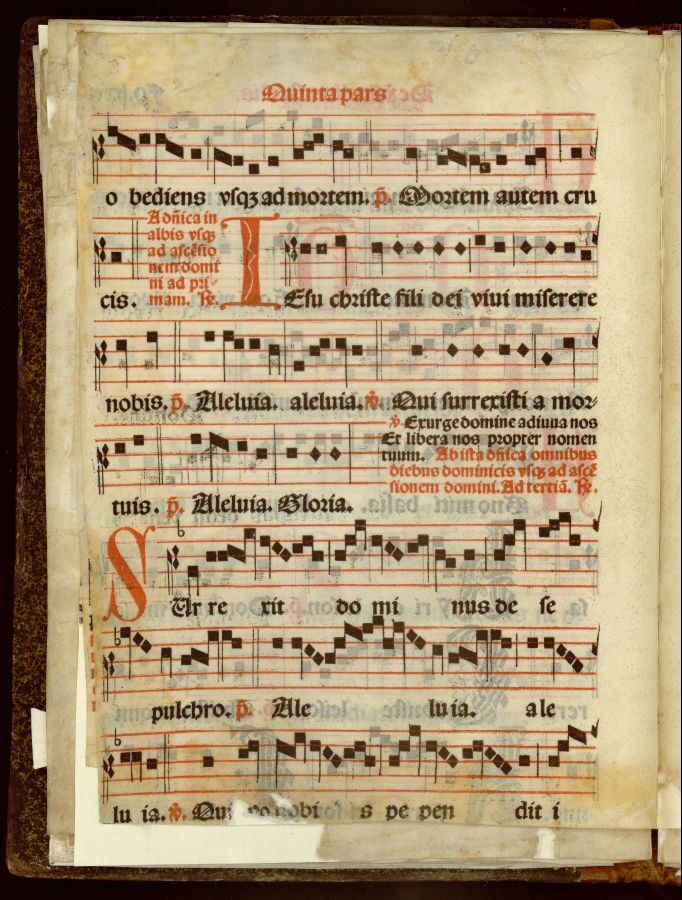 Quinta pars
o bediens vsqꝫ ad mortem. p̄. Mortem autem cru
A dñica in
albis vsqꝫ
ad ascēsio
nem domi
ni ad pri-
mam. ℞.
cis. IEsu christe fili dei viui miserere
nobis. p̄. Aleluia. aleluia. ℣. Qui surrexisti a mor-
℣. Exurge domine adiuua nos
Et libera nos propter nomen
tuum. Ab ista dñica omnibus
diebus dominicis vsqꝫ ad ascē
sionem domini. Ad tertiā. ℞.
tuis. p̄. Aleluia. Gloria.
SUr re xit do mi nus de se
pulchro. p̄. Ale luia. ale
lu ia. ℣. Qui nobi s pe pen dit i